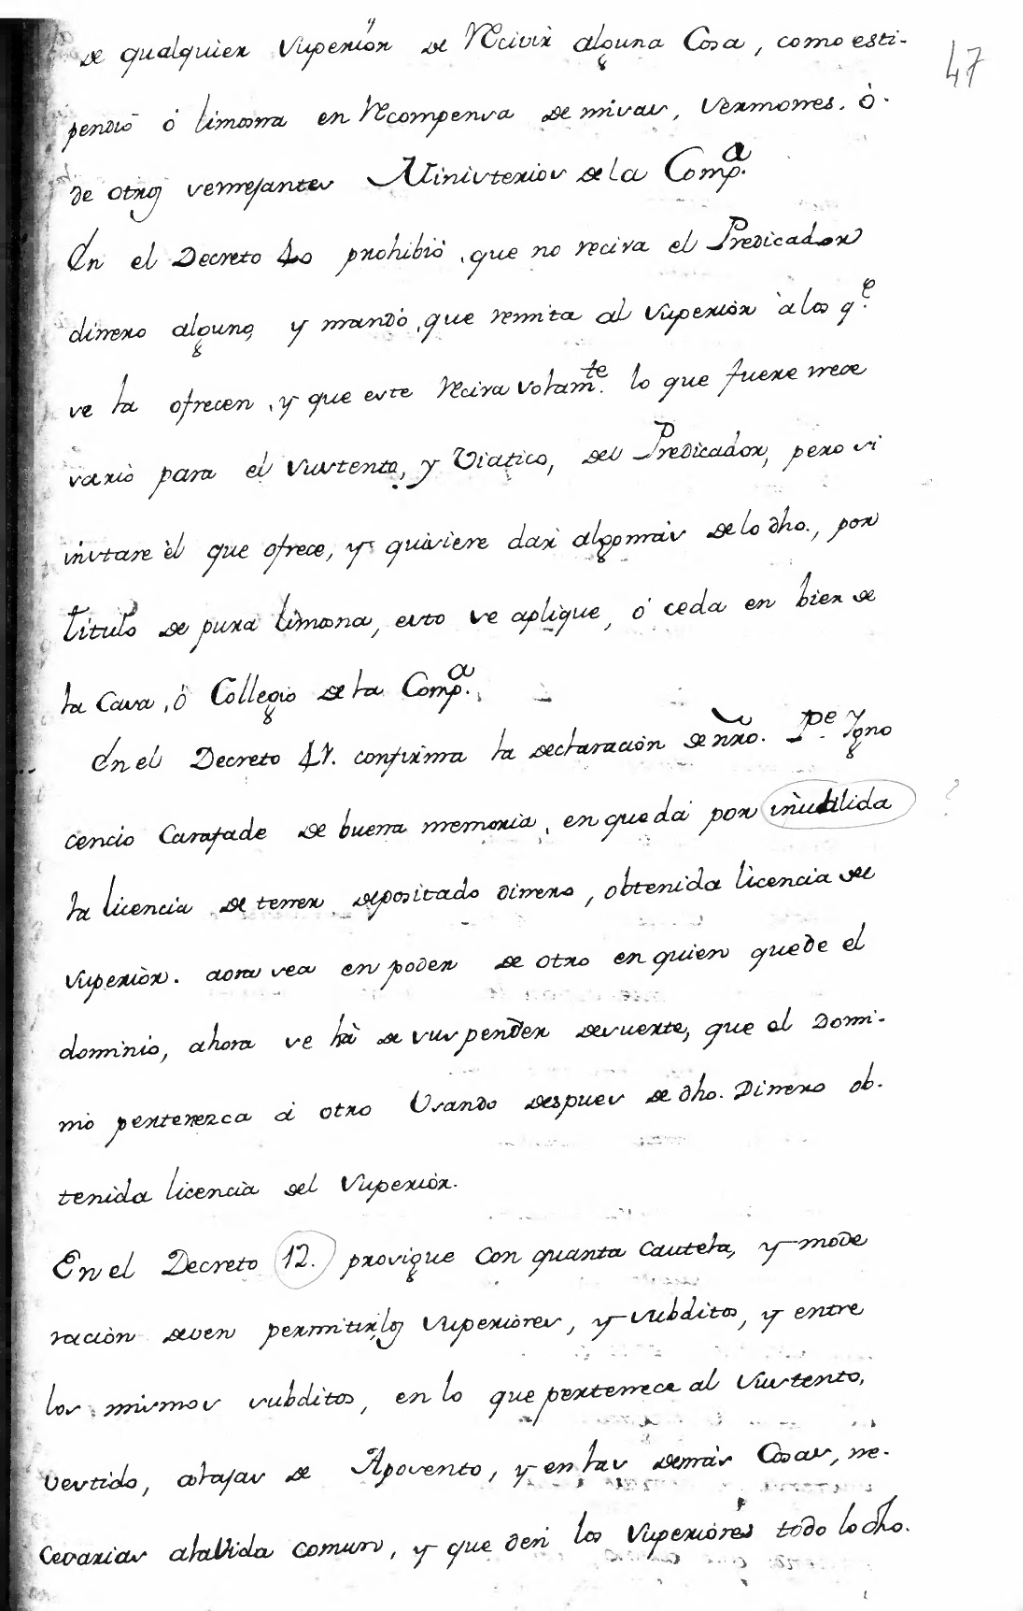 de qualquier Superiór de Recivir alguna Cosa, como esti-
47
pendió ó limosna en Recompensa de misas, sermones. ó
de otros semejantes Ministerios de la Comp.ª
En el Decreto 40 prohibió, que no reciva el Predicador
dinero alguno, y mandó, que remita al Superiór á los q.e
se la ofrecen, y que este Reciva solam.te lo que fuere nece
sario para el sustento, y Viatico, del Predicador, pero si
instare él que ofrece, y quisiere dar algo más de lo dho., por
titulo de pura limosna, esto se aplique, ó ceda en bien de
la Casa, ó Collegio de la Comp.ª
En el Decreto 41. confirma la declaración de nrô. P.e Ygno
cencio Carafade de buena memoria, en que dá por inutilida
la licencia de tener depositado dinero, obtenida licencia del
superiór. aora sea en poder de otro en quien quede el
dominio, ahora se há de suspender desuerte, que el Domi-
nio pertenezca á otro Usando despues de dho. Dinero ob-
tenida licencia del Superiór.
En el Decreto 12. prosigue con quanta cautela, y mode
ración deven permitir, los superióres, y subditos, y entre
los mismos subditos, en lo que pertenece al sustento,
vestido, alajas de Aposento, y en las demás Cosas, ne-
cesarias ala Vida comun, y que den los Superióres todo lo dho.